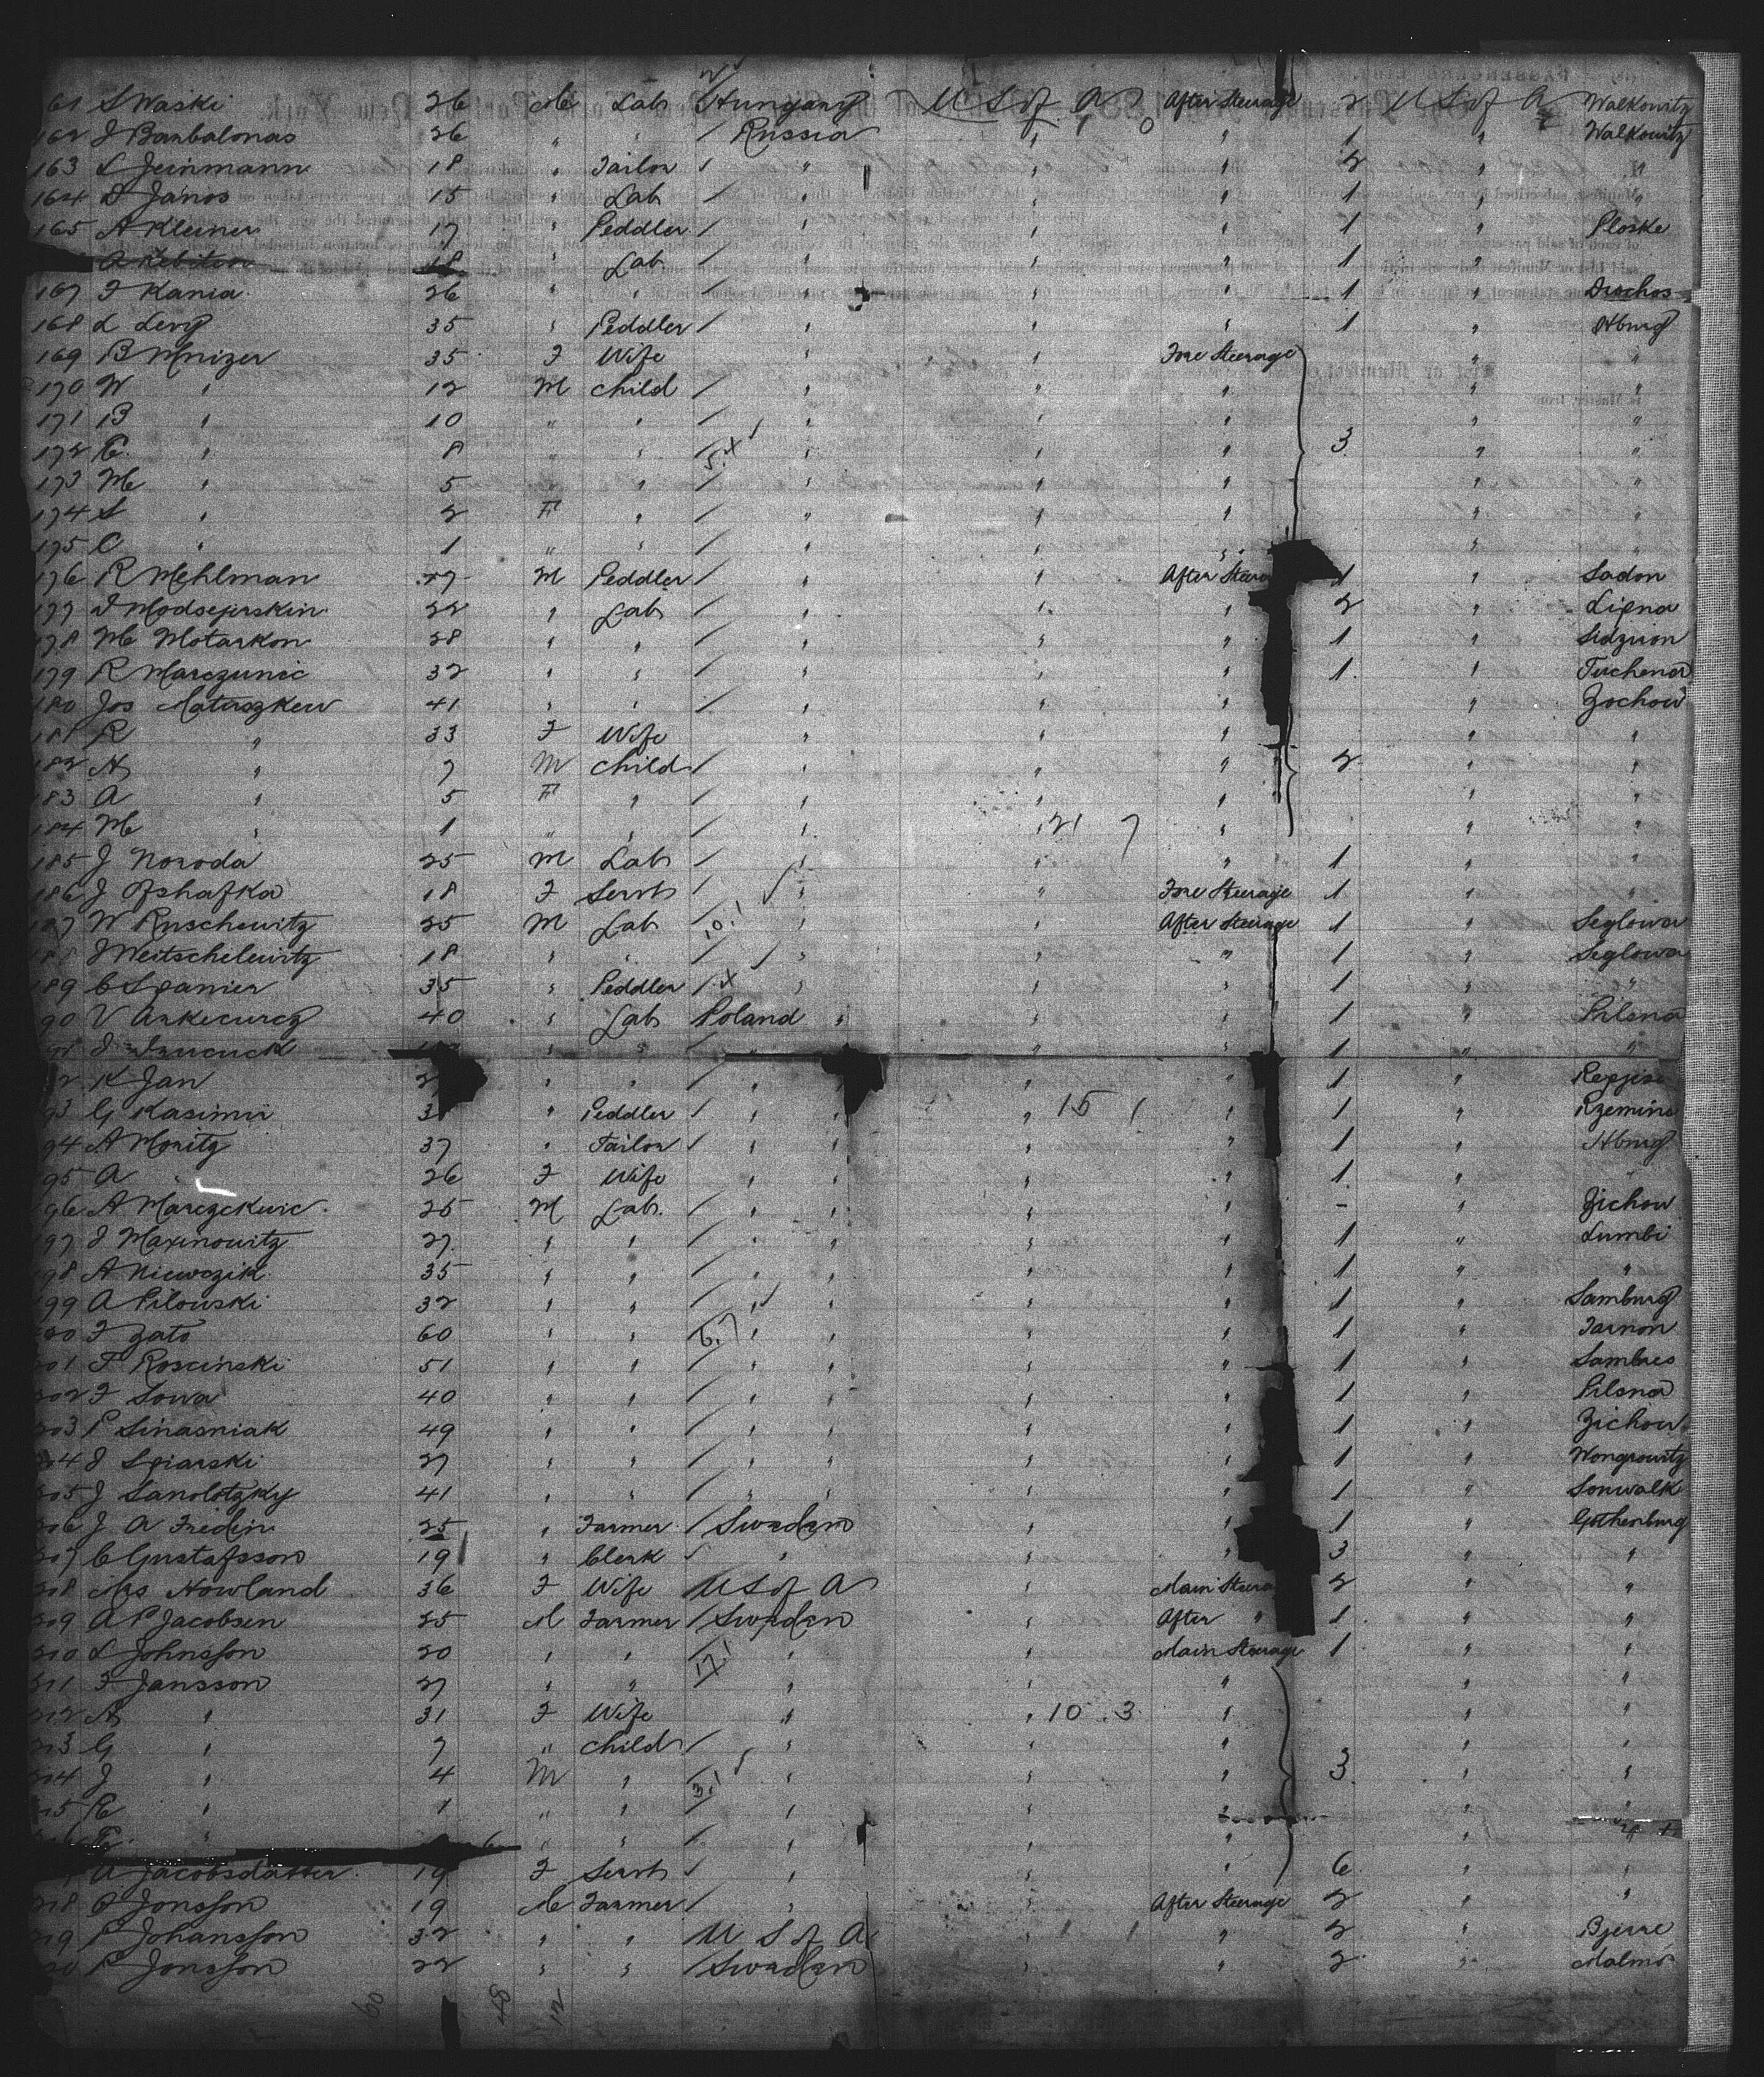 161 S Waski 26 M Lab Hungary U S of A After Steerage 2 U S of A Walkowitz
162 J Barbalonas 26 " " / Russia " " 1 " Walkowitz
163 L Jeinmann 18 " Tailor / " " " 2 " "
164 S János 15 " Lab / " " " 1 " "
165 A Kleiner 17 " Peddler / " " " 1 " Ploske
A Rebitow 18 " Lab " " " 1 " "
167 F Kania 26 " " / " " " 1 " Dischos
168 L Levy 35 " Peddler / " " " 1 " Hburg
169 B Mnizer 35 F Wife " " Fore Steerage " "
170 W " 12 M Child / " " " " "
171 B " 10 " " / " " " " "
172 C " 8 " " / " " " 3 " "
173 M " 5 " " / " " " " "
174 S " 2 F " / " " " " "
175 C " 1 " " / " " " " "
176 R Mehlman 27 M Peddler / " " After Steera 1 " Sadon
177 J Modsejerskin 22 " Lab / " " " 2 " Lipna
178 M Motarkon 28 " " / " " " 1 " Sidzion
179 R Marczunic 32 " " / " " " 1 " Tuchena
180 Jos Matuszkew 41 " " / " " " " Zochow
181 R " 33 F Wife " " " " "
182 N " 7 M Child / " " " 2 " "
183 A " 5 F " / " " " " "
184 M " 1 " " / " " 21 7 " " "
185 J Noroda 25 M Lab / " " " 1 " "
186 J Ofshafka 18 F Servt / " " Fore Steerage 1 " "
187 W Ruschewitz 25 M Lab 10.1 " " After Steerage 1 " Seglowa
188 J Weitschelewitz 18 " " / " " " 1 " Seglowa
189 C Spanier 35 " Peddler / x " " " 1 " "
90 V Ankecurcz 40 " Lab Poland " " " 1 " Pilsna
" " " " 1 " "
2 K Jan 2 " " / " " " " 1 " Repjise
93 G Kasimir 3 " Peddler / " " " 15 1 " 1 " Rzemine
94 A Moritz 37 " Tailor / " " " " 1 " Hburg
95 A 26 F Wife " " " " 1 " "
96 A Marczckwic 25 M Lab / " " " " - " Zichow
197 J Maxinowitz 27 " " / " " " " 1 " Lumbi
98 A Niewczik 35 " " / " " " " 1 " "
99 A Pilowski 32 " " / " " " " 1 " Samburg
200 F Zato 60 " " 6.7 " " " " 1 " Tarnon
201 F Roscinski 51 " " / " " " " 1 " Sambres
202 F Sowa 40 " " / " " " " 1 " Pilsna
203 P Sinasniak 49 " " / " " " " 1 " Zichow
204 J Spiarski 27 " " / " " " " 1 " Wongrowitz
205 J Sanolotzky 41 " " / " " " " 1 " Sonwalk
206 J A Fredin 25 " Farmer / Sweden " " 1 " Gothenburg
207 C Gustafsson 19 " Clerk / " " " 3 " "
208 Mrs Howland 36 F Wife U S of A " Main Steera 2 " "
209 A P Jacobsen 25 M Farmer / Sweden " After " 1 " "
210 L Johnsson 20 " " 17.1 " " Main Steerage 1 " "
211 F Jansson 27 " " / " " " " "
212 A " 31 F Wife " " 10 3 " " "
213 G " 7 " Child / " " " " "
214 J " 4 M " 3.1 " " " 3 " "
215 E " 1 " " / " " " " "
" 6 " " / " " " "
A Jacobsdatter 19 F Servt / " " " 6 " "
218 O Jonsson 19 M Farmer / " " After Steerage 2 " "
219 P Johansson 32 " " U S of A " 1 1 " 2 " Bjerre
20 P Jonsson 22 " " / Sweden " " 2 " Malmö
60 48 12